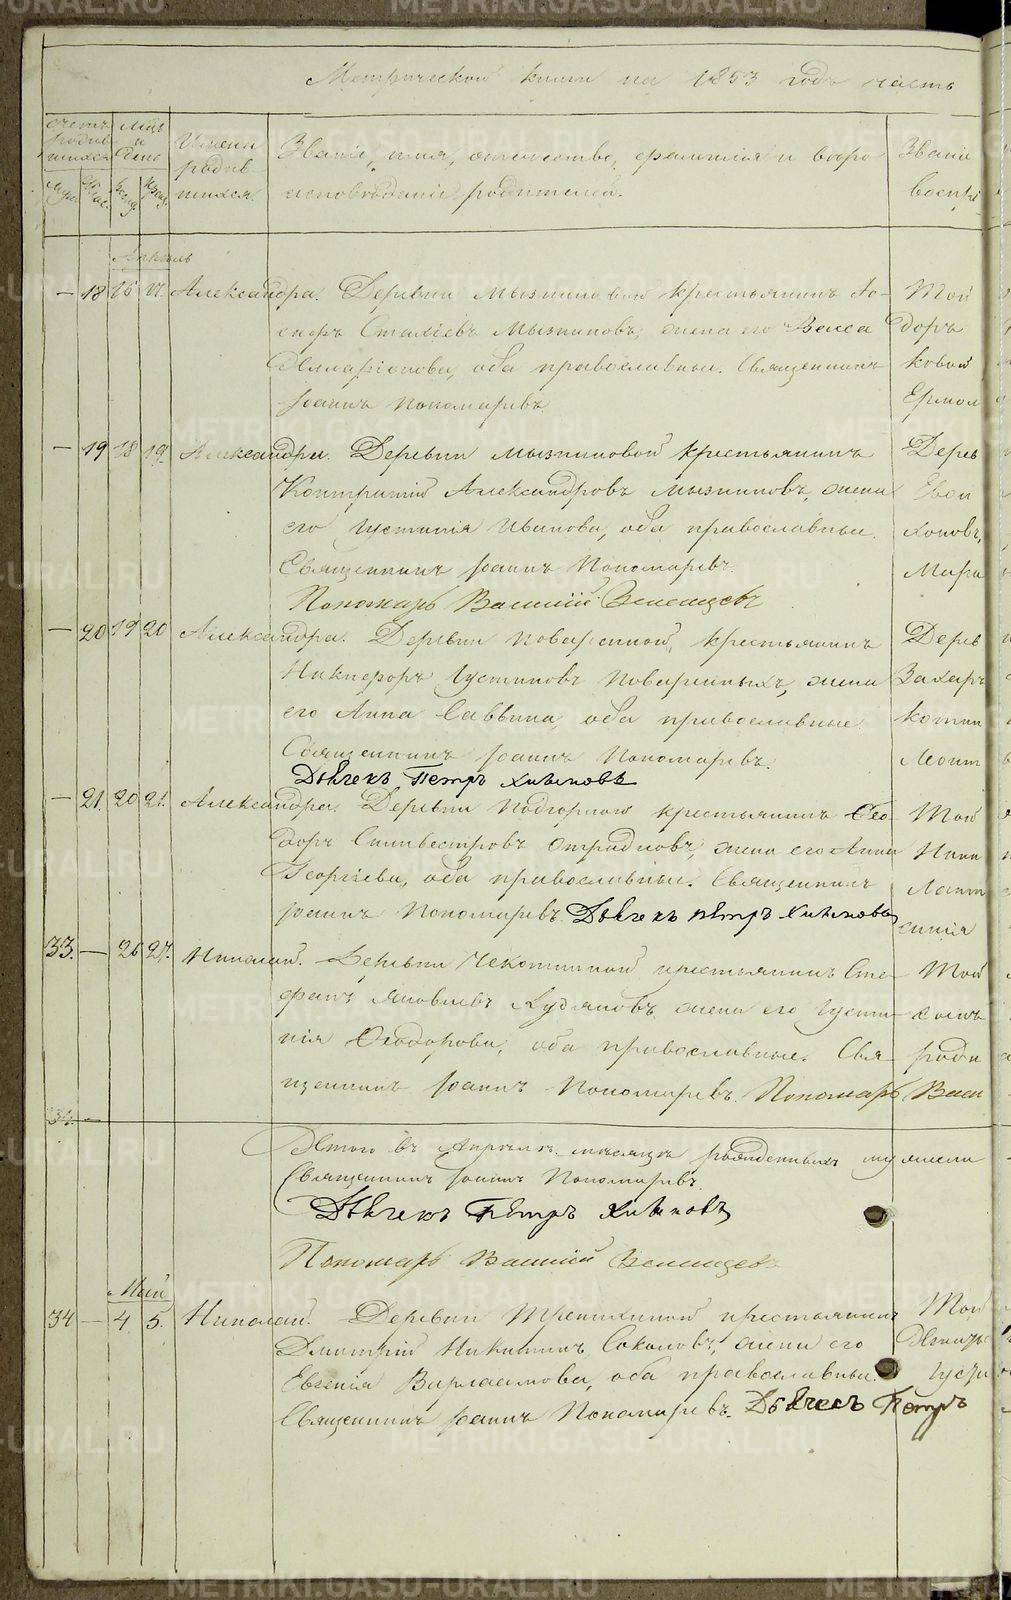 Метрической книги на 1853 годъ часть
Счетъ родив шихся
Муж. Жен.
Мѣс. и Число
Рожд. Крещ.
Имена родив шихся.
Званіе, имя, отечество, фамилія и вѣро
исповѣданіе родителей.
Званіе
воспрі
Апрѣль
— 18 16 17. Александра. Деревни Мызниковой крестьянинъ Іо-
сифъ Стахіевъ Мызниковъ, жена его Васса
Илларіонова, оба православные. Священникъ
Іоаннъ Пономаревъ
Той
доръ
ковой
Ермол
— 19 18 19. Александра. Деревни Мызниковой крестьянинъ
Кондратій Александровъ Мызниковъ, жена
его Іустинія Иванова, оба православные.
Священникъ Іоаннъ Пономаревъ.
Пономарь Василій
Дерев
ховъ,
Мари
— 20 19 20 Александра. Деревни Поваренной, крестьянинъ
Никифоръ Іустиновъ Поваренныхъ, жена
его Анна Саввина, оба православные
Священникъ Іоаннъ Пономаревъ.
Дьячекъ Петръ Хитновъ
Дерев
Захаръ
котин
Леонт
— 21 20 21. Александра. Деревни Подгорной крестьянинъ Ѳео-
доръ Силивестровъ Отрадновъ, жена его Анна
Георгіева, оба православные. Священникъ
Іоаннъ Пономаревъ. Дьячекъ Петръ Хитновъ
Той
Ники
синія
33. — 26 27. Николай. Деревни Чекотиной крестьянинъ Сте-
фанъ Яковлевъ Худяковъ, жена его Іусти-
нія Ѳеодорова, оба православные. Свя-
щенникъ Іоаннъ Пономаревъ. Пономарь Васи
Той
роди
34. —
Итого въ Апрѣлѣ мѣсяцѣ рожденныхъ
Священникъ Іоаннъ Пономаревъ
Дьячекъ Петръ Хитновъ
Пономарь Василій
Май
34 — 4 5. Николай. Деревни крестьянинъ
Димитрій Никитинъ Соколовъ, жена его
Евгенія Варлаамова, оба православные.
Священникъ Іоаннъ Пономаревъ. Дьячекъ Петръ
Той
METRIKI.GASO-URAL.RU